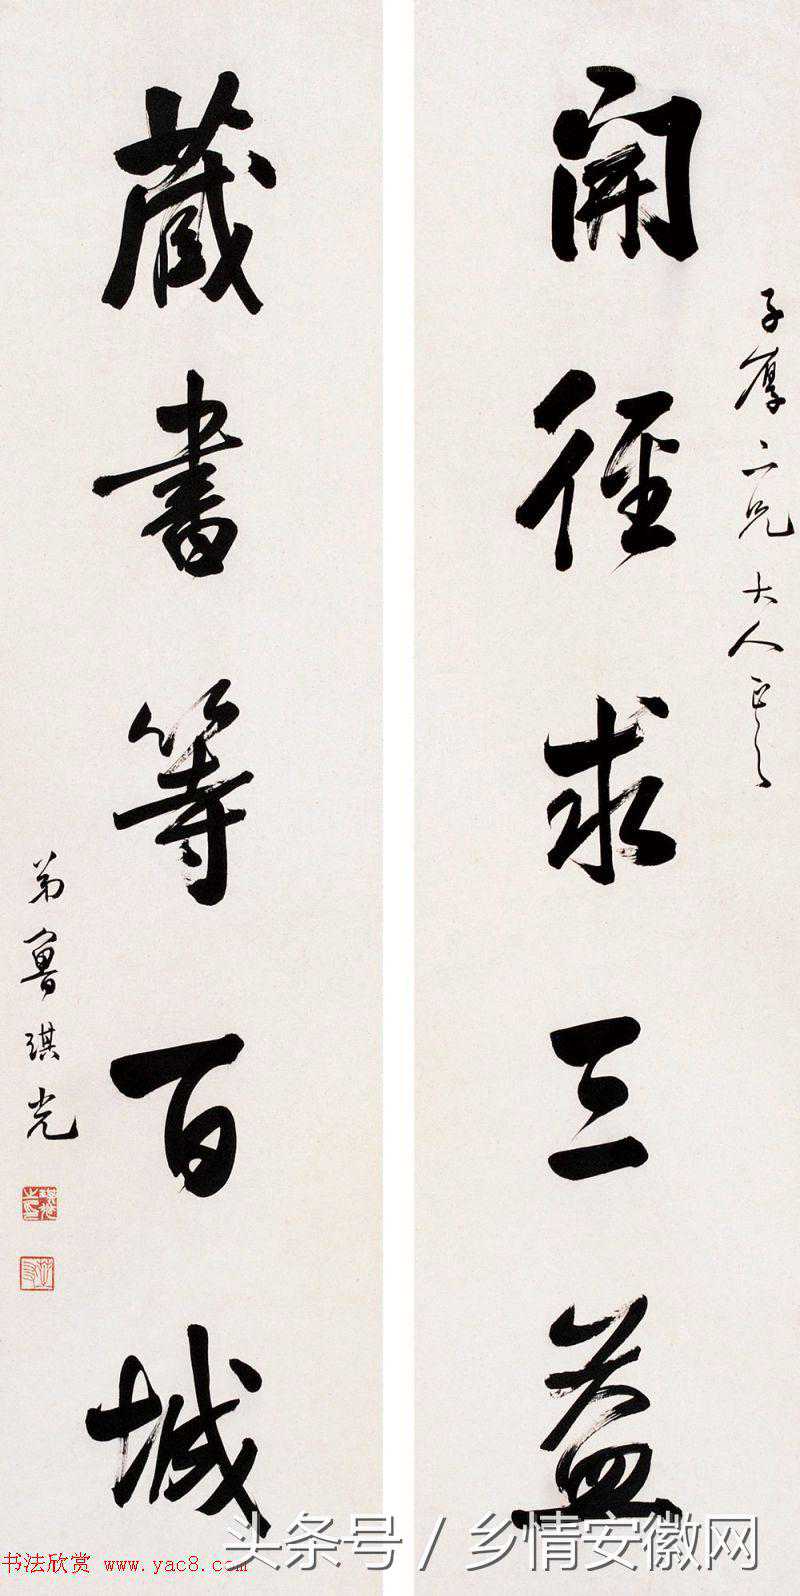 子厚二兄大人正之
開徑求三益
藏書等百城
弟魯琪光
头条号 / 乡情安徽网
书法欣赏 www.yac8.com